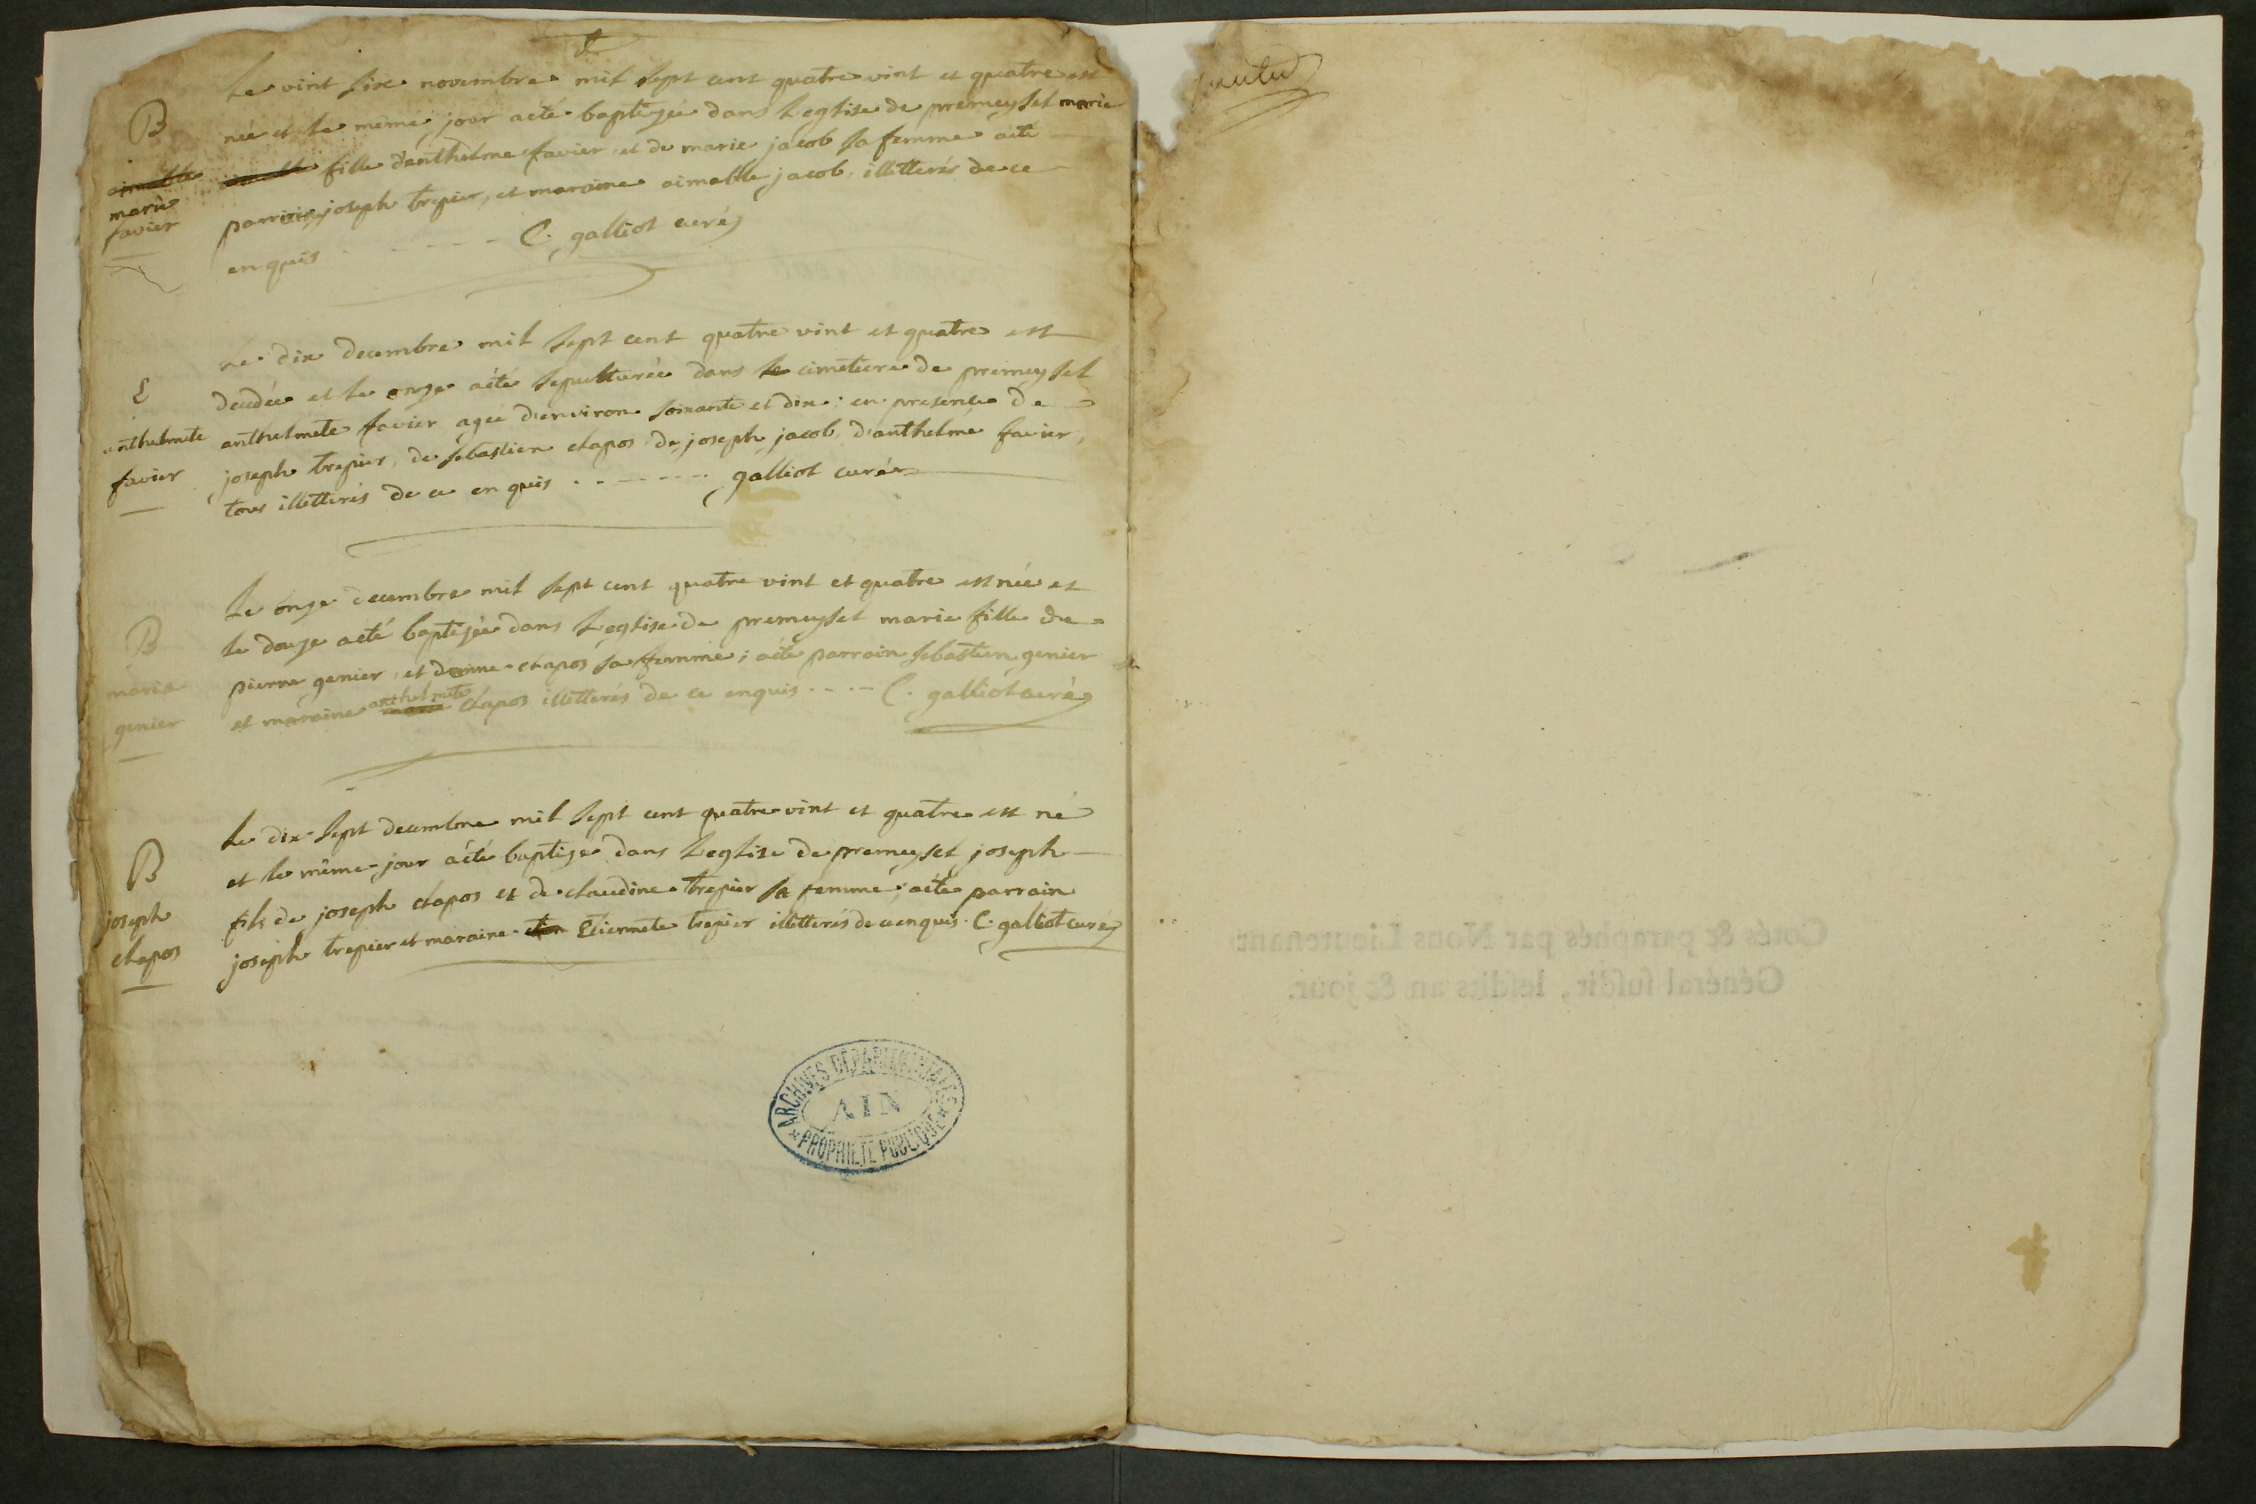 B
marie
favier
Le vint six novembre mil sept cent quatre vint et quatre est
née et le meme jour aeté baptizée dans L'eglise de premeyset marie
fille d'anthelme favier et de marie jacob sa femme aeté
parrain joseph trepier, et maraine aimable jacob illitterés de ce
enquis - - - - - - C. galliot curé
S
anthelmete
favier
Le dix decembre mil sept cent quatre vint et quatre est
decedée et le onze aété sepulturée dans le cimetiere de premeyset
anthelmete favier agée d'environ soixante et dix : en presence de
joseph trepier, de sebastien chapos de joseph jacob d'anthelme favier,
tous illitterés de ce enquis - - - - - - - galliot curé
B
marie
genier
Le onze decembre mil sept cent quatre vint et quatre est née et
le douze aeté baptizée dans L'eglise de premeyset marie fille de
pierre genier, et chapos sa femme ; aété parrain sebastien genier
et maraine anthelmete chapos illitterés de ce enquis - - - - C. galliot curé
B
joseph
chapos
Le dix sept decembre mil sept cent quatre vint et quatre est né
et le même jour aété baptizé dans L'eglise de premeyset joseph
fils de joseph chapos et de claudine trepier sa femme ; aété parrain
joseph trepier et maraine Etiennete trepier illitterés de ce enquis. C. galliot curé
ARCHIVES DEPARTEMENTALES
AIN
PROPRIETE PUBLIQUE
Cotés & paraphés par Nous Lieutenant
Général susdit, lesdits an & jour.